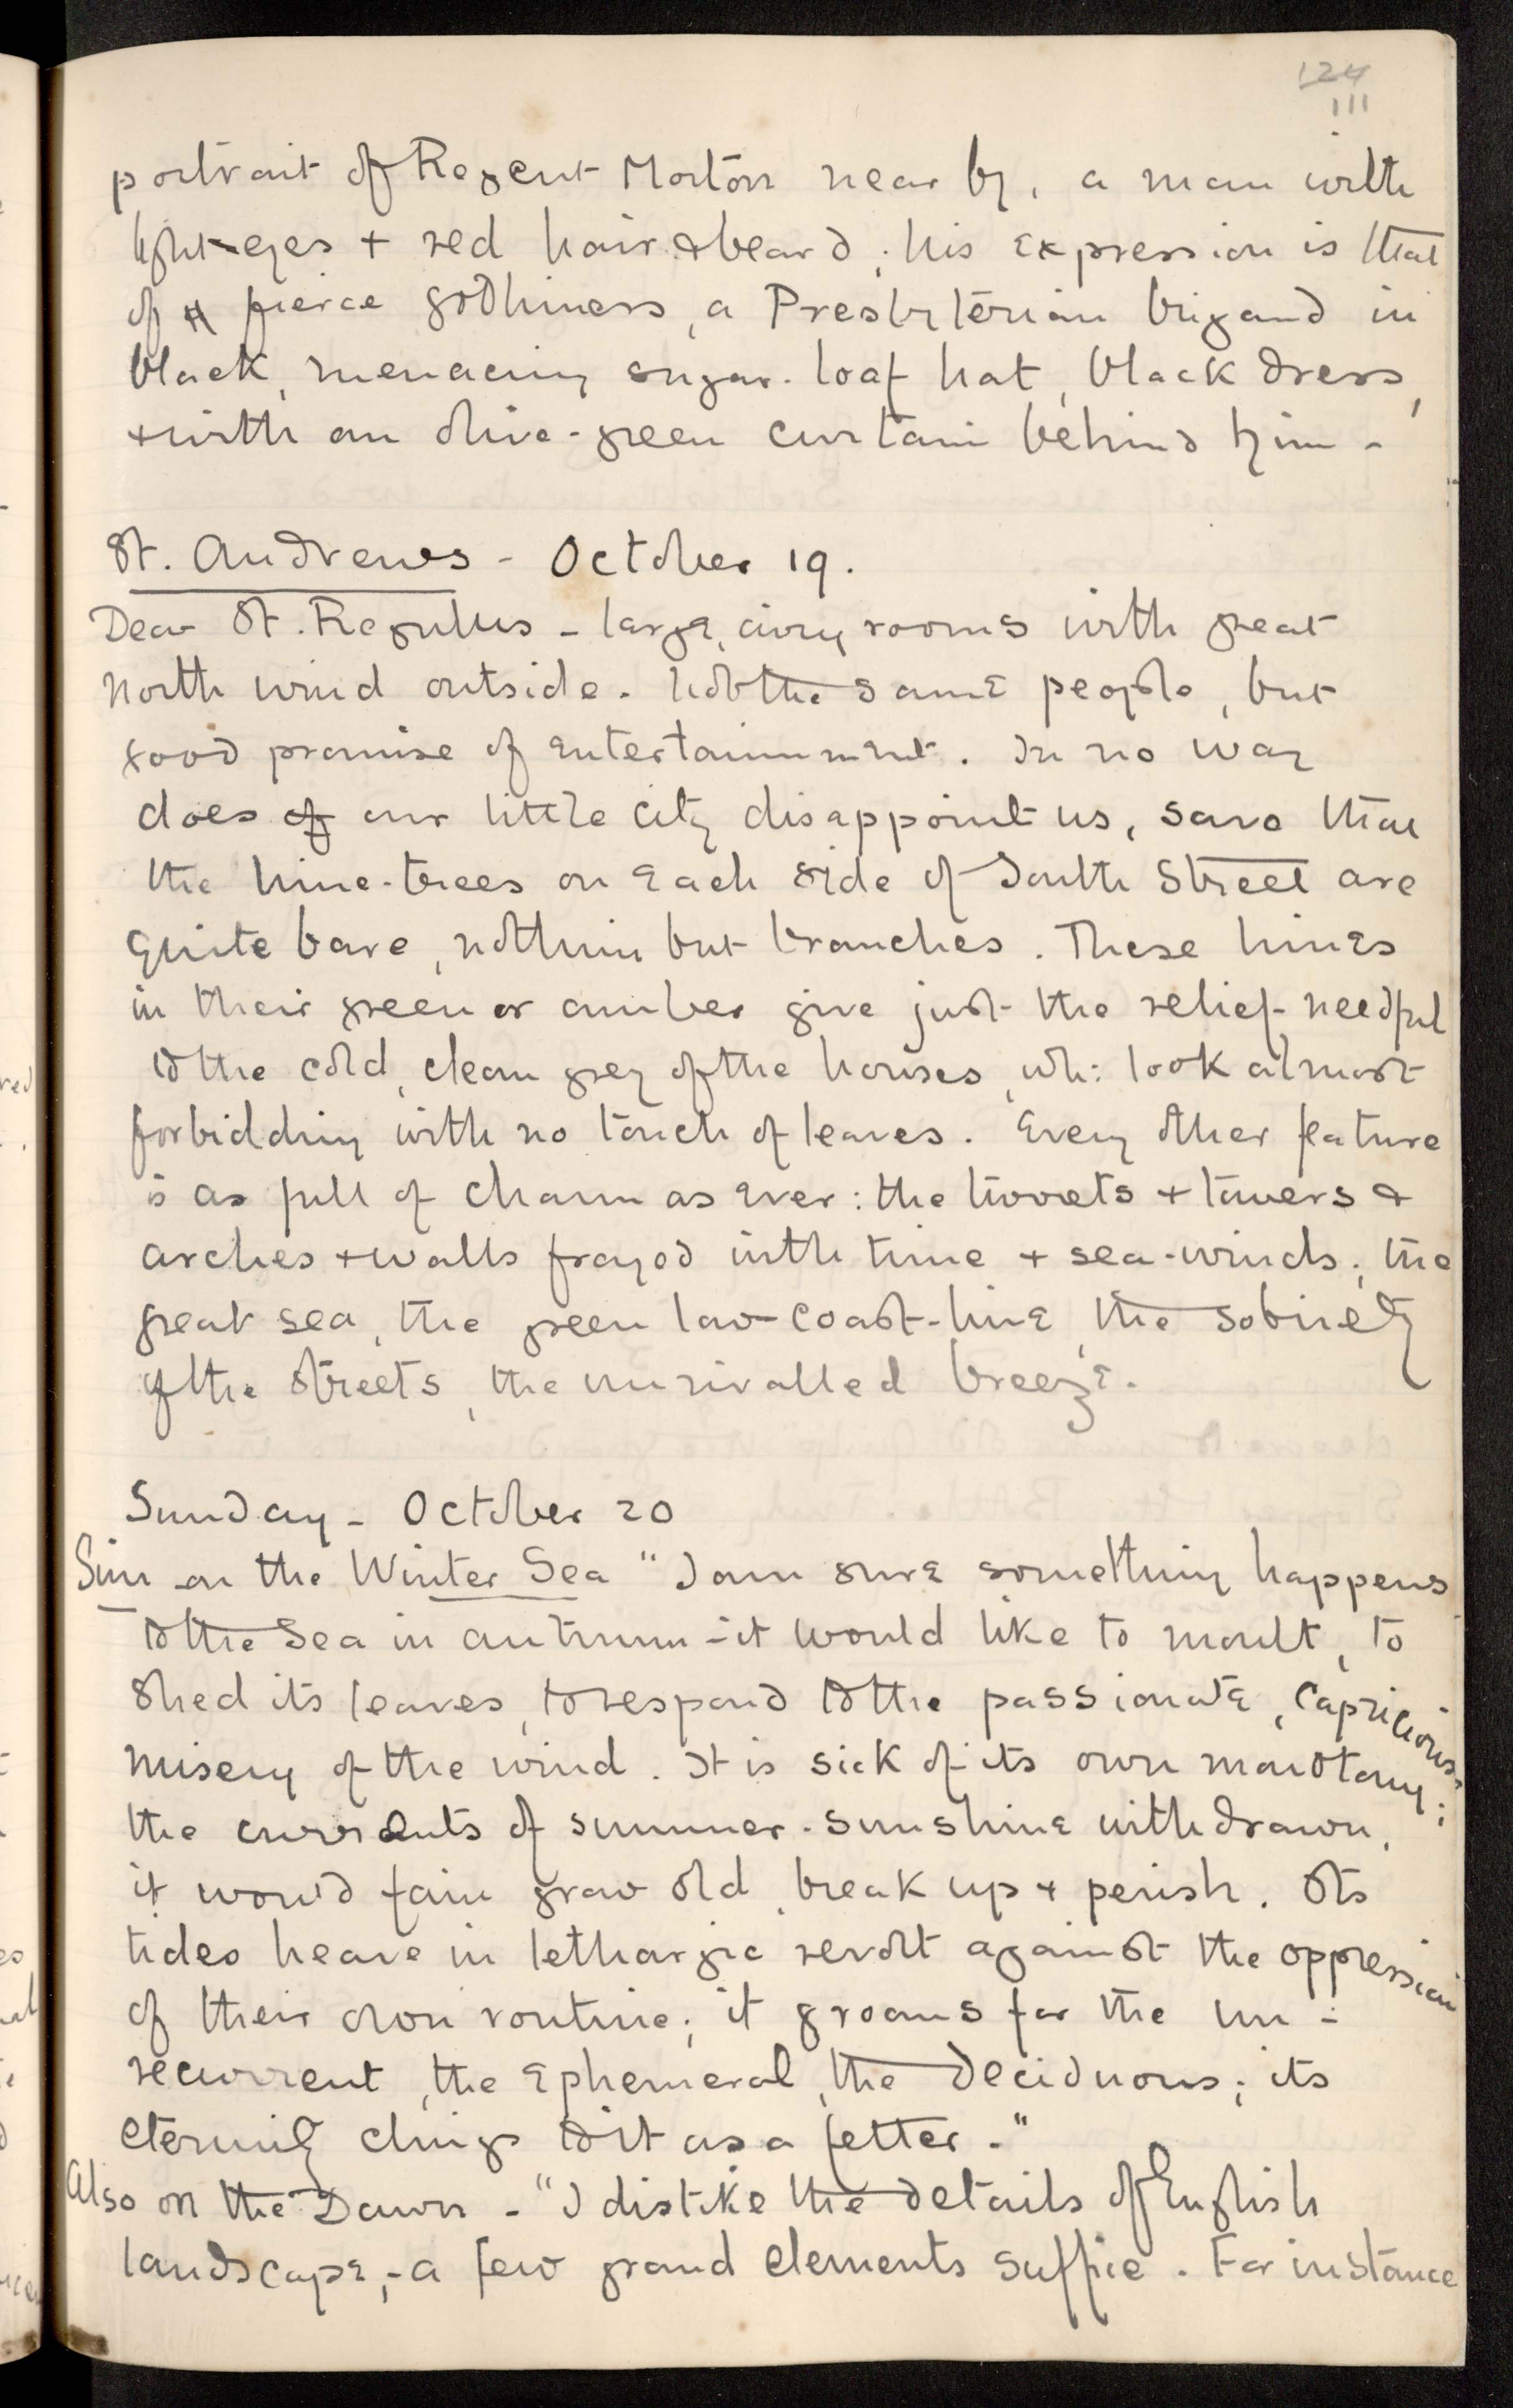 124
111
portrait of Regent Morton near by, a man with
light eyes + red hair & beard; his expression is that
of fierce godliness, a Presbyterian brigand in
black, menacing sugar-loaf hat, black dress,
+ with an olive-green curtain behind him -
St. Andrews - October 19.
Dear St. Regulus - large, airy rooms with great
North wind outside. Not the same people, but
good promise of entertainment. In no way
does of our little city disappoint us, save that
the lime-trees on each side of South Street are
quite bare, nothing but branches. These limes
in their green or amber give just the relief needful
to the cold, clean grey of the houses, wh: look almost
forbidding with no touch of leaves. Every other feature
is as full of charm as ever: the turrets + towers &
arches + walls frayed with time + sea-winds; the
great sea, the green low coast-line, the sobriety
of the streets, the unrivalled breeze.
Sunday - October 20
Sim on the Winter Sea "I am sure something happens
to the Sea in autumn - it would like to moult, to
shed its leaves, to respond to the passionate, capricious
misery of the wind. It is sick of its own monotony;
the currents of summer-sunshine withdrawn,
it would fain grow old, break up + perish. Its
tides heave in lethargic revolt against the oppression
of their own routine; it groans for the un-
recurrent, the ephemeral, the deciduous; its
eternity clings to it as a fetter."
Also on the Dawn - "I dislike the details of English
landscape, - a few grand elements suffice. For instance